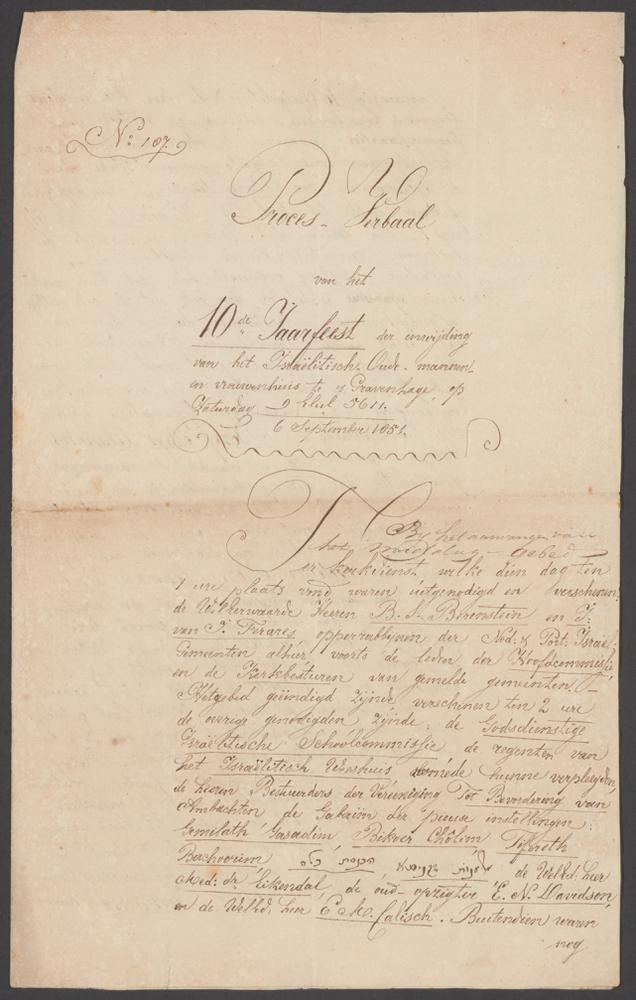 No. 107.
Proces-Verbaal
van het
10de Jaarfeest der inwijding
van het Israëlitisch Oude-mannen
en vrouwenhuis te 's Gravenhage, op
Zaturdag 9 Elul 5611.
6 September 1851.
Bij het aanvangen van
het middag-gebed
ter kerkdienst welke dien dag ten
1 ure plaats vond waren uitgenodigd en verschenen:
de WelEerwaarde Heeren B. S. Berenstein en J.
van J. Ferares opperrabbijnen der Ned: & Port: Israel:
Gemeenten alhier voorts de leden der Hoofdcommissie
en de Kerkbesturen van gemelde gemeenten. –
Uitgebed geëindigd zijnde, verschenen ten 2 ure
de overige genodigden zijnde: de Godsdienstige
Israëlitische Schoolcommissie, de regenten van
het Israëlitisch Weeshuis benede hunne verpleegden,
de heeren Bestuurders der Vereeniging Tot Bevordering van
Ambachten de Gabaim der pieuse instellingen:
Gemilath Gasadim, Bikver Cholim, Tifereth
Bachoerim הכנסת כלה de WelEd: heer
Med: dr. Eikendal, de oud-opzigter E. N. Davidson,
en de WelEd. heer E. M. Calisch. Buitendien waren
nog